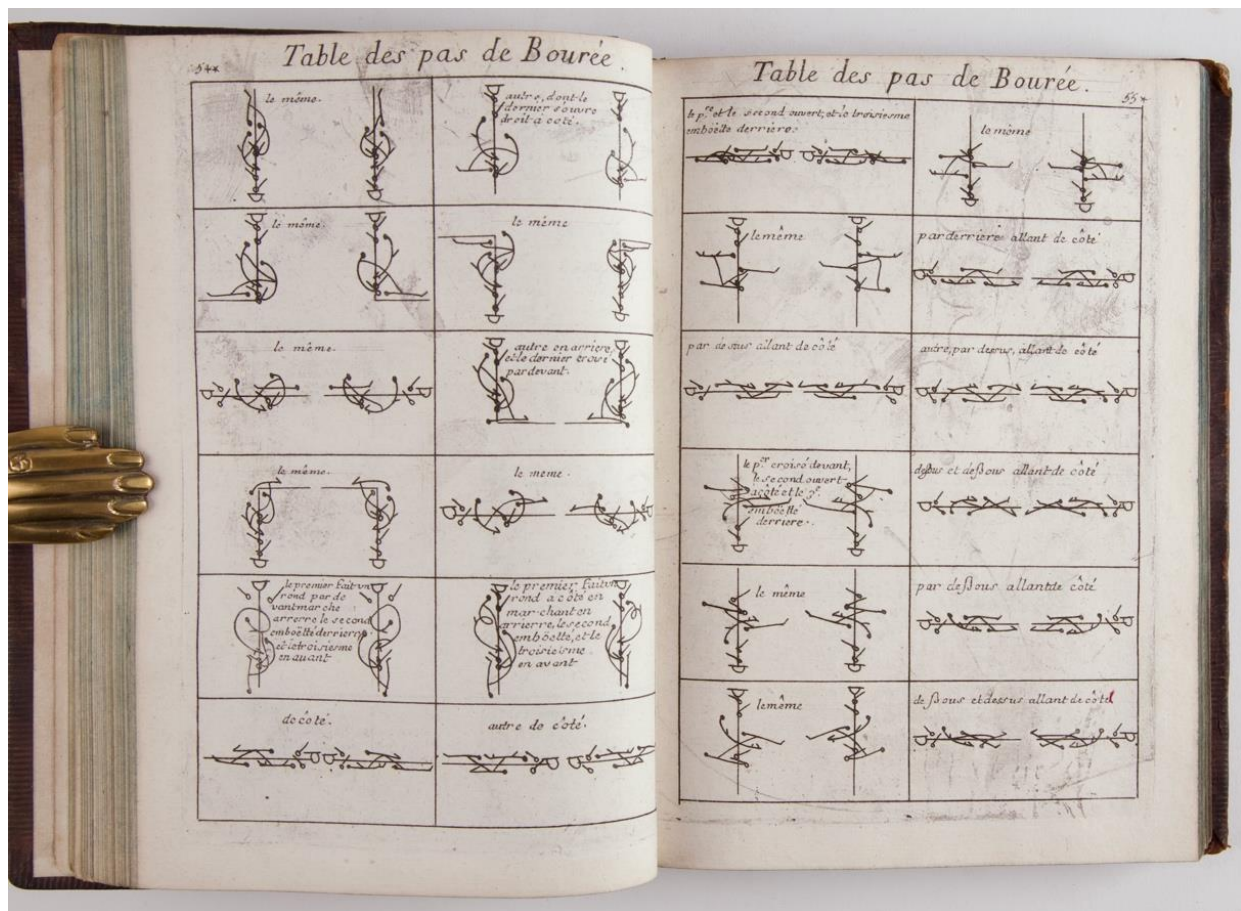 54*
Table des pas de Bourée.
le même.
autre, dont le
dernier s'ouvre
droit a coté.
le même.
le même
le même.
autre en arriere,
et le dernier croisé
par devant.
le même.
le meme.
le premier fait un
rond par de
vant marche
arrerre le second
emboëtte derriere
et le troisiesme
en avant
le premier fait un
rond a côté en
marchant en
arrierre, le second
emböette, et le
troisieisme
en avant
de coté.
autre de côté.
Table des pas de Bourée.
55*
le p.er et le second ouvert, et le troisiesme
emboëtte derriere.
le même
le même
par derriere allant de côté
par dessus allant de côté
autre, par dessus, allant de côté
le p.er croisé devant,
le second ouvert
a côté et le 3.e
emboëtté
derriere.
deßus et deßous allant de côté
le même
par deßous allant de côté
le même
deßous et dessus allant de côté